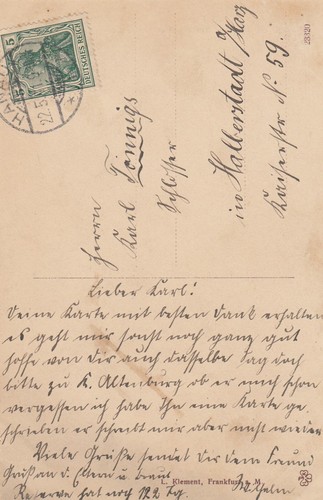 5
5
DEUTSCHES REICH
HANAU
22.5
23320
Herrn
Karl Tönnigs
Schlosser
in Halberstadt /Harz
Kaiserstr No 59.
Lieber Karl!
Deine Karte mit besten Dank erhalten
es geht mir sonst noch ganz gut
hoffe von dir auch dasselbe Sag doch
bitte zu K. Altenburg ob er mich schon
vergessen ich habe ihn eine Karte ge-
schrieben er schreibt mir aber nicht wieder
Viele Grüße sendet dir dein Freund
Wilhelm
Gruß an d. Eltern u. Braut
Reserve hat noch 122 Tg.
L. Klement, Frankfurt a. M.